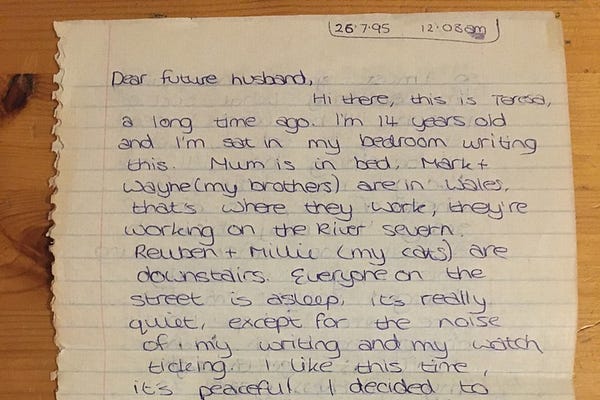 26·7·95 12:08am
Dear future husband,
Hi there, this is Teresa,
a long time ago. I'm 14 years old
and I'm sat in my bedroom writing
this. Mum is in bed, Mark +
Wayne (my brothers) are in Wales,
that's where they work, they're
working on the River severn.
Reuben + Millie (my cats) are
downstairs. Everyone on the
street is asleep, it's really
quiet, except for the noise
of my writing and my watch
ticking. I like this time,
it's peaceful. I decided to